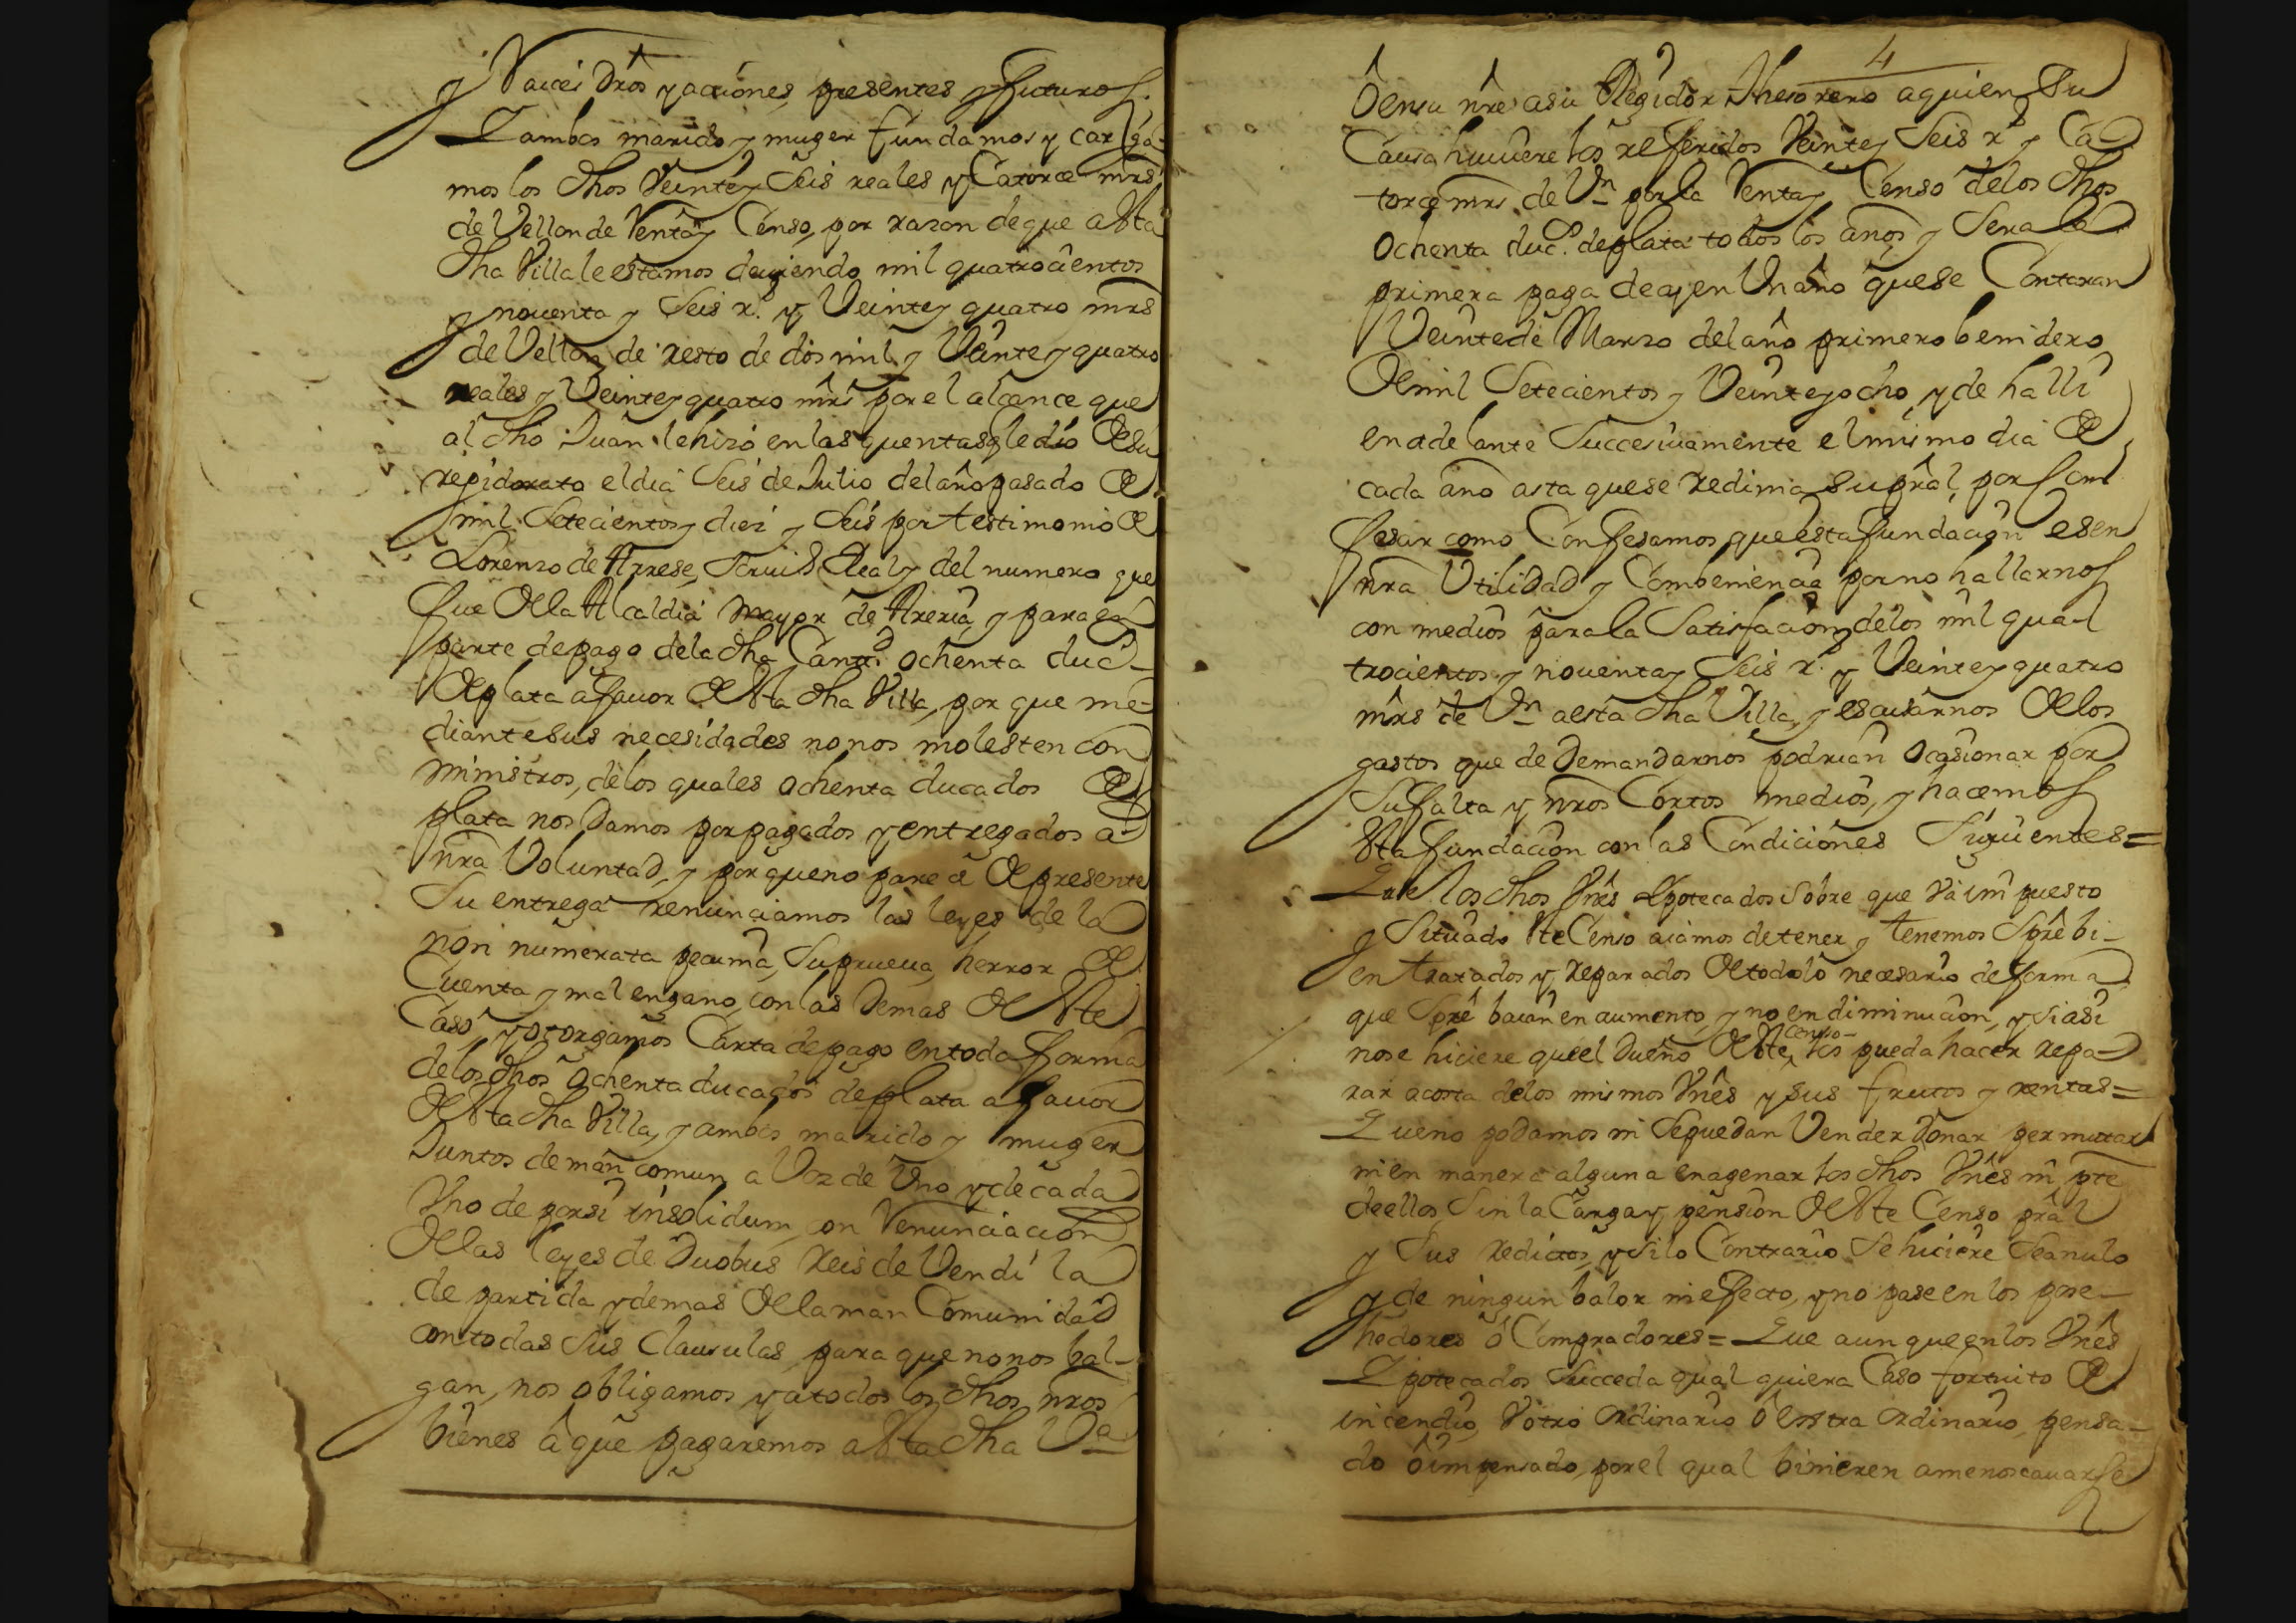 y Raices dros y acciones, presentes y futuros.
Y ambos marido y muger fundamos y carga-
mos los dhos Veinte y Seis reales y Catorce mrs
de Vellon de Renta y Censo, por razon de que a esta
dha Villa le estamos deviendo mil quatrocientos
y noventa y Seis rs. y Veinte y quatro mrs
de Vellon, de resto de dos mil y Veinte y quatro
reales y Veinte y quatro mrs por el alcance que
al dho Juan le hizo en las quentas q le dio de su
regidorato el dia Seis de Julio del año pasado de
mil Setecientos y diez y Seis por testimonio de
Lorenzo de Arrese, Scrivo Real y del numero que
fue de la Alcaldia mayor de Areria, y para en
parte de pago de la dha Cantd. ochenta ducs
de plata a favor de esta dha Villa, por que me-
diante sus necesidades no nos molesten con
ministros, de los quales ochenta ducados de
plata nos damos por pagados y entregados a
nra Voluntad, y por que no parece de presente
Su entrega renunciamos las leyes de la
non numerata pecunia, Su prueva, herror de
Cuenta y mal engano, con las demas de este
Caso, y otorgamos Carta de pago en toda forma
de los dhos ochenta ducados de plata a favor
de esta dha Villa, y ambos marido y muger
Juntos de man comun, a Voz de Uno y de cada
Uno de por si insolidum, con Renunciacion
de las leyes de Duobus reis de Vendi la
de partida y demas de la man Comunidad
con todas sus Clausulas, para que no nos bal-
gan, nos obligamos y a todos los dhos nros
bienes â que pagaremos a esta dha Va
4
ô en su nre a su Regidor Thesorero a quien Su
Causa huviere los referidos Veinte y Seis rs y Ca
torce mrs de Vn por la Renta y Censo de los dhos
ochenta ducs. de plata todos los años y Sera la
primera paga de oy en Un año que se Contaran
Veinte de Marzo del año primero benidero
de mil Setecientos y Veinte y ocho, y de halli
en adelante Succesivamente el mismo dia de
cada año asta que se redima su pral, por con
fesar como Confesamos que esta fundacion es en
nra Utilidad y Combeniencia por no hallarnos
con medios para la Satisfacion de los mil qua
trocientos y noventa y Seis rs. y Veinte y quatro
mrs de Vn a esta dha Villa, y escusarnos de los
gastos que de Demandarnos podrian ocasionar por
Su falta y nros Cortos medios, y hacemos
esta fundacion con las Condiciones Siguientes=
Que los dhos Vnes Ypotecados Sobre que va impuesto
y Situado este Censo aiamos de tener y tenemos Spre bi-
en tratados y reparados de todo lo necesario de forma
que Spre baian en aumento, y no en diminucion, y si asi
no se hiciere que el dueño de este censo los pueda hacer repa-
rar a costa de los mismos Vnes y sus frutos y rentas=
Que no podamos ni Se puedan Vender Donar permutar
ni en manera alguna enagenar los dhos Vnes ni pte
de ellos, Sin la Carga y pension de este Censo pral
y Sus redictos, y si lo Contrario Se hiciere Sea nulo
y de ningun balor ni efecto, y no pase en los pose-
hedores ô Compradores= Que aun que en los Vnes
Ypotecados Succeda qual quiera Caso fortuito de
incendio, V otro ordinario ô extra ordinario, pensa-
do ô impensado, por el qual binieren a menoscavarse